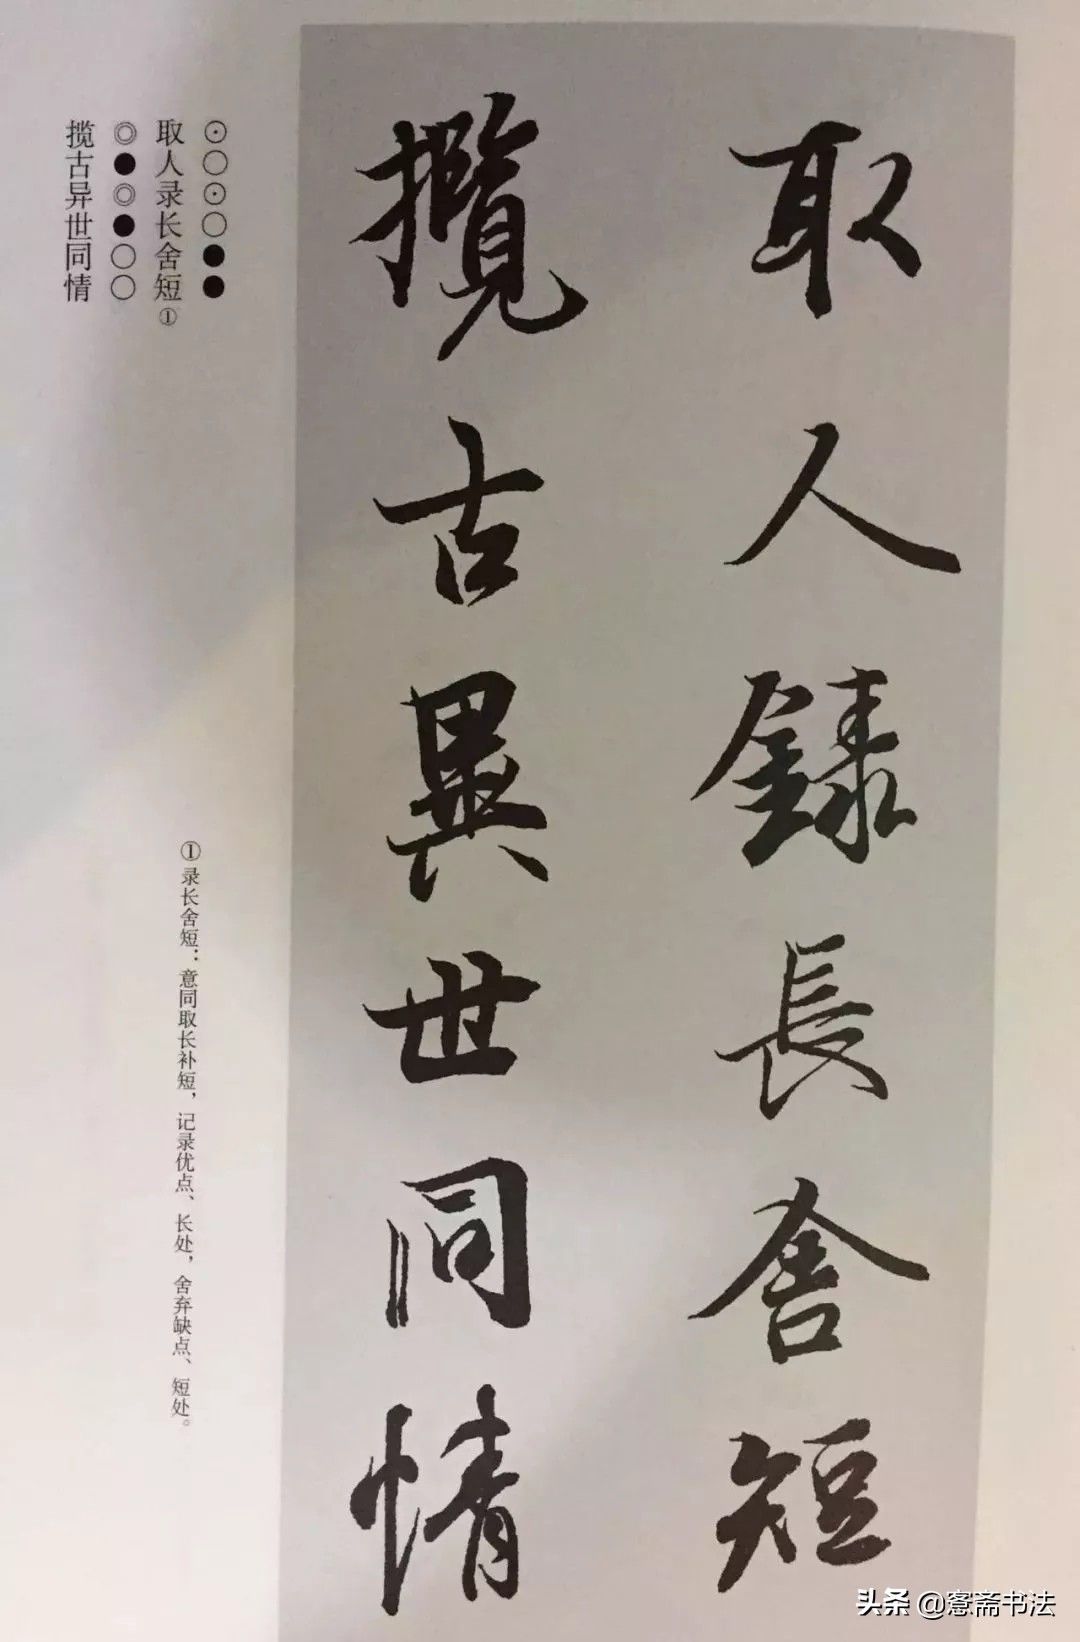 取人錄長舍短
攬古異世同情
⊙○⊙○●●
取人录长舍短①
◎●◎●○○
揽古异世同情
①录长舍短：意同取长补短，记录优点、长处，舍弃缺点、短处。
头条@愙斋书法